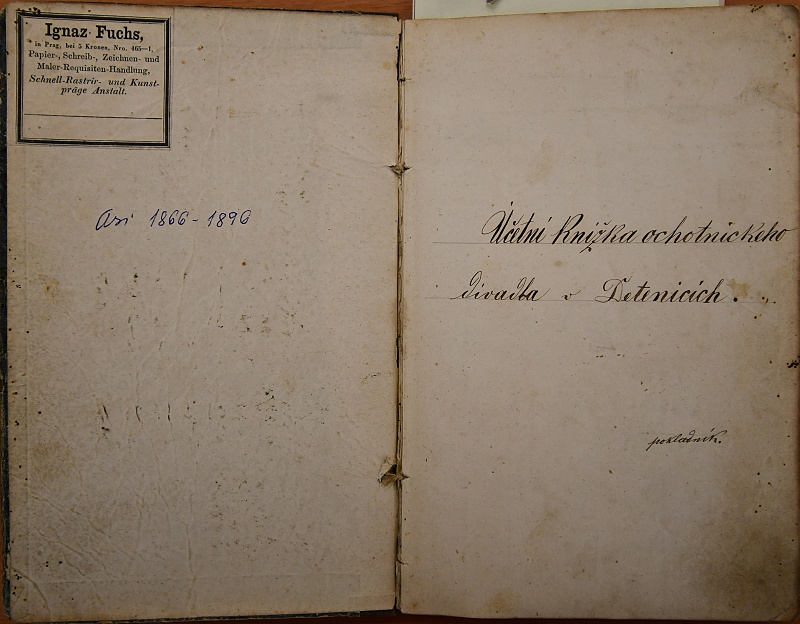 Ignaz Fuchs,
in Prag, bei 5 Kronen, Nro. 465—1,
Papier-, Schreib-, Zeichnen- und
Maler-Requisiten-Handlung,
Schnell-Rastrir- und Kunst-
präge Anstalt.
Asi 1866 - 1896
Účetní Knižka ochotnickeho
divadla v Detenicich.
pokladník.